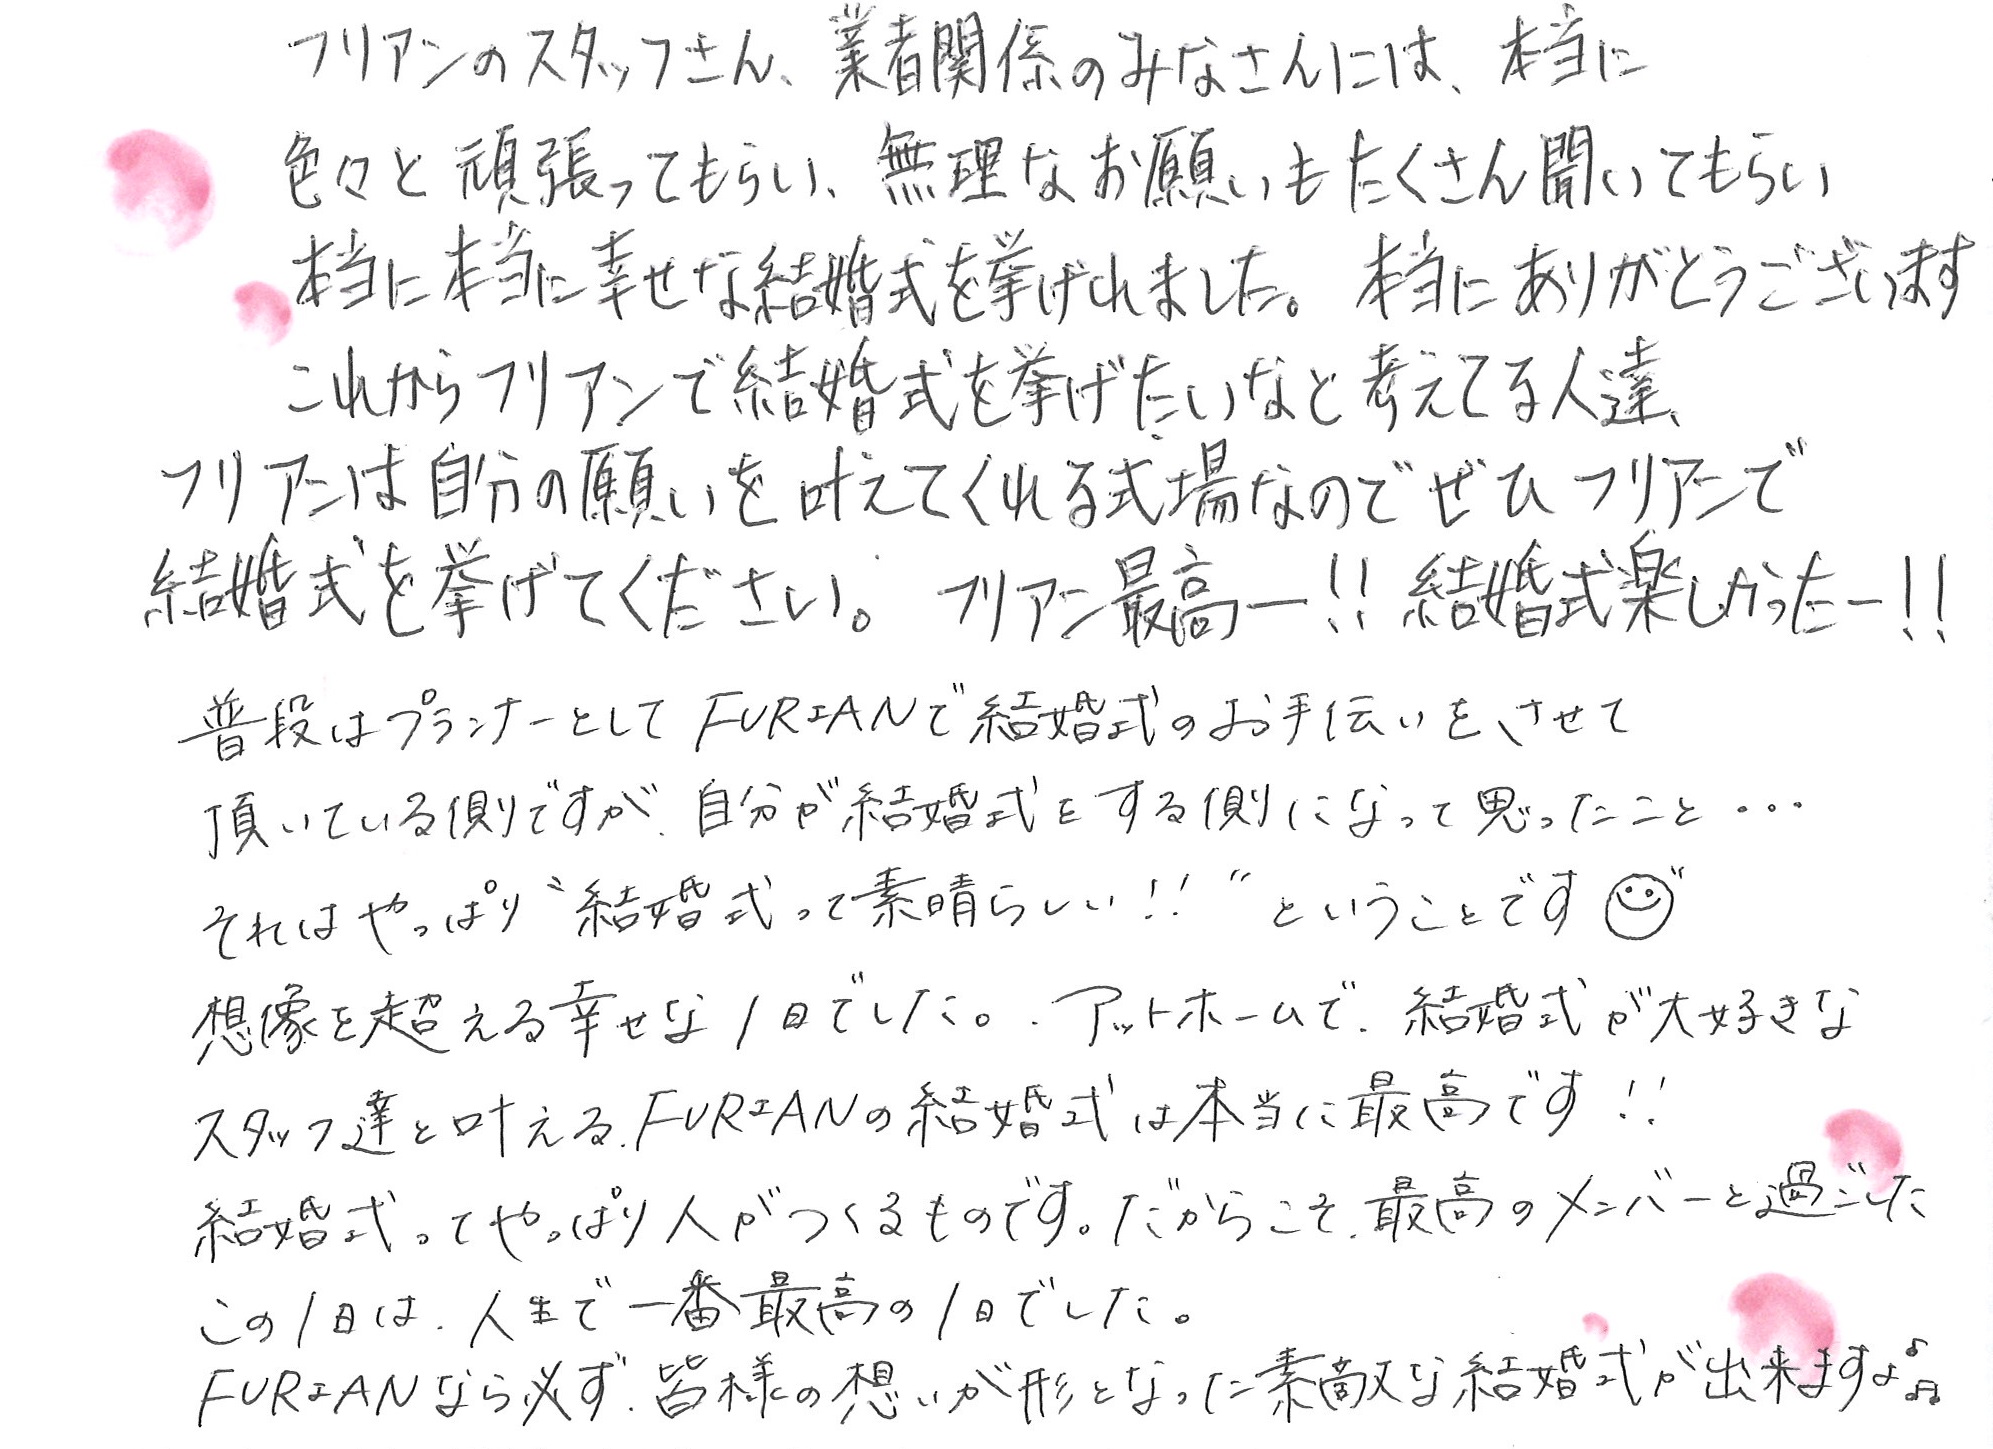 フリアンのスタッフさん、業者関係のみなさんには、本当に
色々と頑張ってもらい、無理なお願いもたくさん聞いてもらい
本当に本当に幸せな結婚式を挙げれました。本当にありがとうございます
これからフリアンで結婚式を挙げたいなと考えてる人達、
フリアンは自分の願いを叶えてくれる式場なのでぜひフリアンで
結婚式を挙げてください。フリアン最高ー!!結婚式楽しかったー!!
普段はプランナーとしてFURIANで結婚式のお手伝いをさせて
頂いている側ですが、自分が結婚式をする側になって思ったこと・・・
それはやっぱり"結婚式って素晴らしい!!"ということです☺
想像を超える幸せな1日でした。アットホームで、結婚式が大好きな
スタッフ達と叶える、FURIANの結婚式は本当に最高です!!
結婚式ってやっぱり人がつくるものです。だからこそ、最高のメンバーと過ごした
この1日は、人生で一番最高の1日でした。
FURIANなら必ず、皆様の想いが形となった素敵な結婚式が出来ますよ♪♫